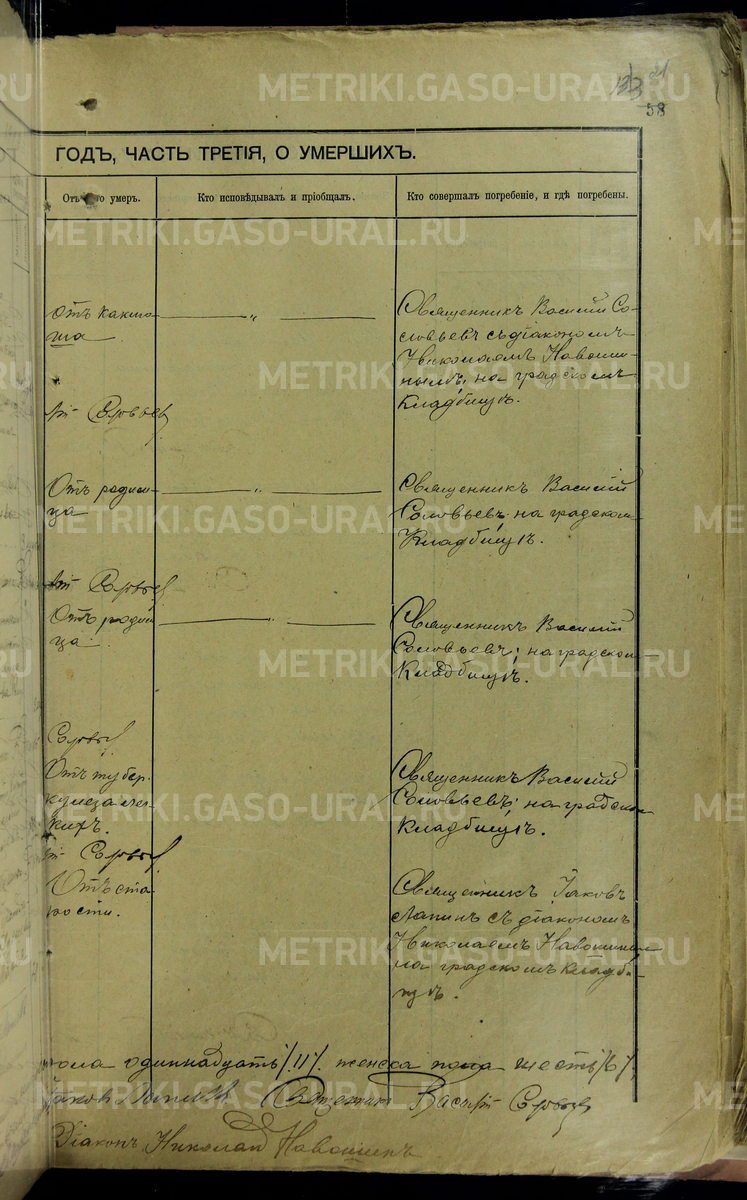 58
ГОДЪ, ЧАСТЬ ТРЕТІЯ, О УМЕРШИХЪ.
Отъ го умеръ.
Кто исповѣдывалъ и пріобщалъ.
Кто совершалъ погребеніе, и гдѣ погребены.
Отъ
Священникъ Василій Со-
ловьевъ съ діакономъ
Николаемъ Навоши-
нымъ, на градскомъ
кладбищѣ.
Отъ родим-
ца
Священникъ Василій
Соловьевъ; на градском
кладбищѣ.
Отъ родим
ца
Священникъ Василій
Соловьевъ; на градском
кладбищѣ.
Отъ тубер-
кулеза лег-
кихъ.
Священникъ Василій
Соловьевъ; на градском
кладбищѣ.
Отъ ста-
рости.
Священникъ Іаковъ
Лапинъ съ діакономъ
Николаемъ Навошиным
на градскомъ кладби-
щѣ.
пола одиннадцать /11/. женска пола шесть /6/.
Священник Васил
Діаконъ Николай Навошинъ
METRIKI.GASO-URAL.RU